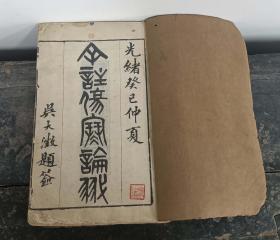 光緒癸巳仲夏
傷寒論
吳大澂題簽